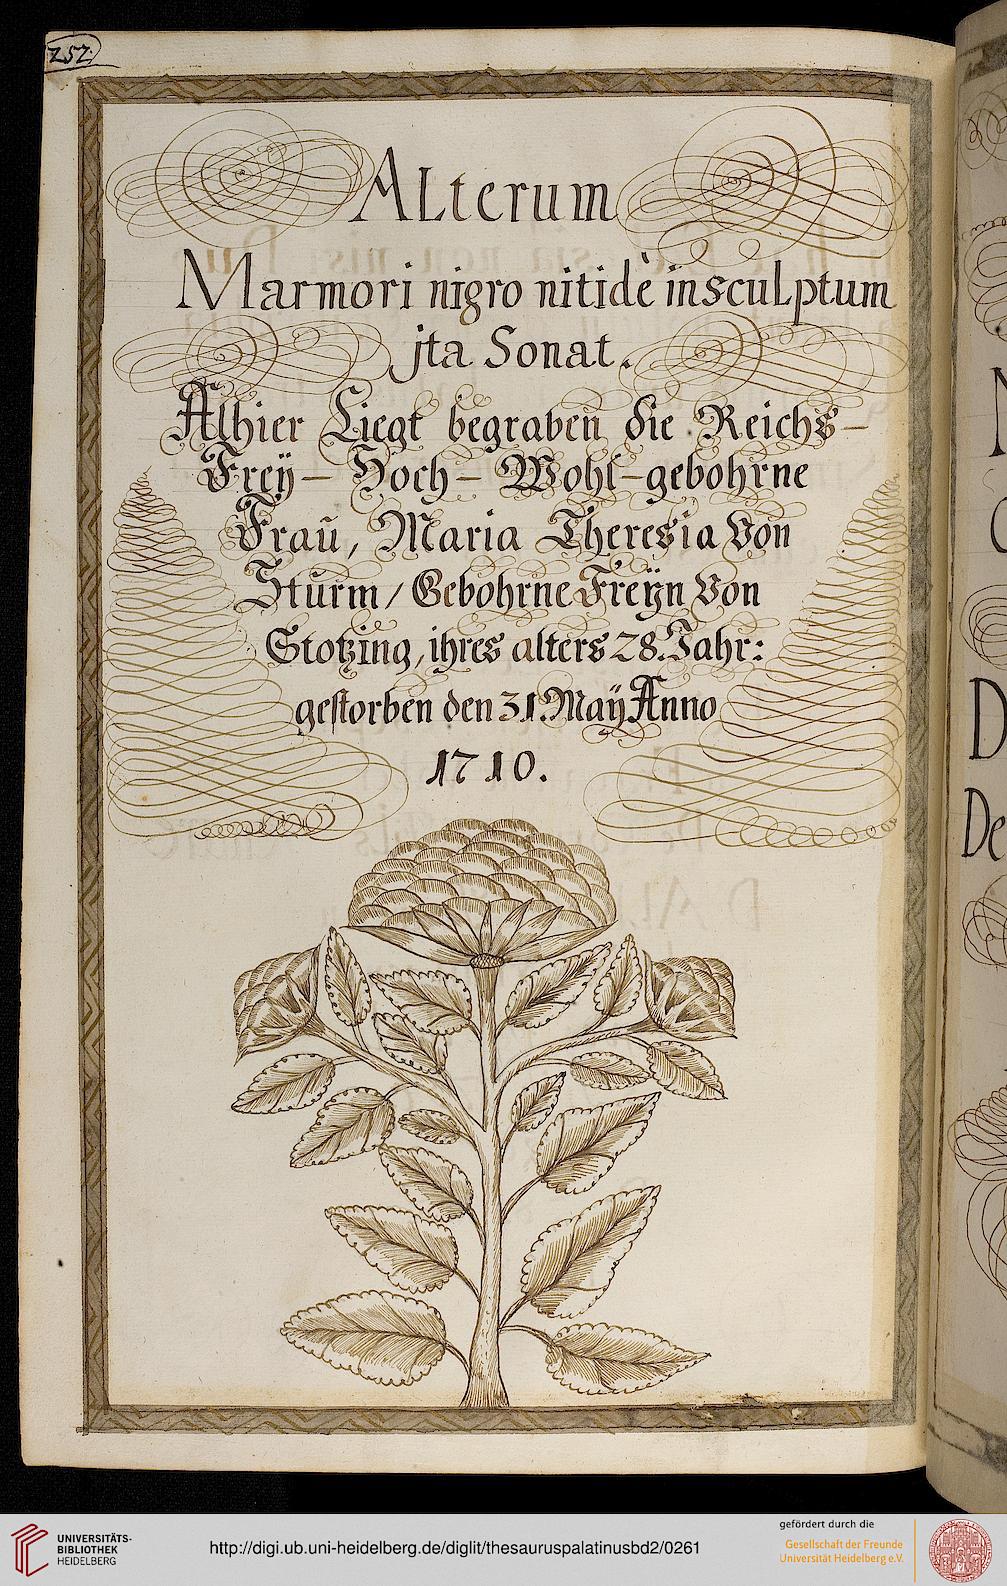 252.
ALterum
Marmori nigro nitidè inscuLptum
jta Sonat.
Alhier Liegt begraben die Reichs-
Freÿ- Hoch- Wohl-gebohrne
Fraŭ, Maria Theresia Von
Stŭrm / Gebohrne Freÿn Von
Stotzing, ihres alters 28. Jahr:
gestorben den 31. Maÿ Anno
1710.
De
UNIVERSITÄTS-
BIBLIOTHEK
HEIDELBERG
http://digi.ub.uni-heidelberg.de/diglit/thesauruspalatinusbd2/0261
gefördert durch die
Gesellschaft der Freunde
Universität Heidelberg e.V.